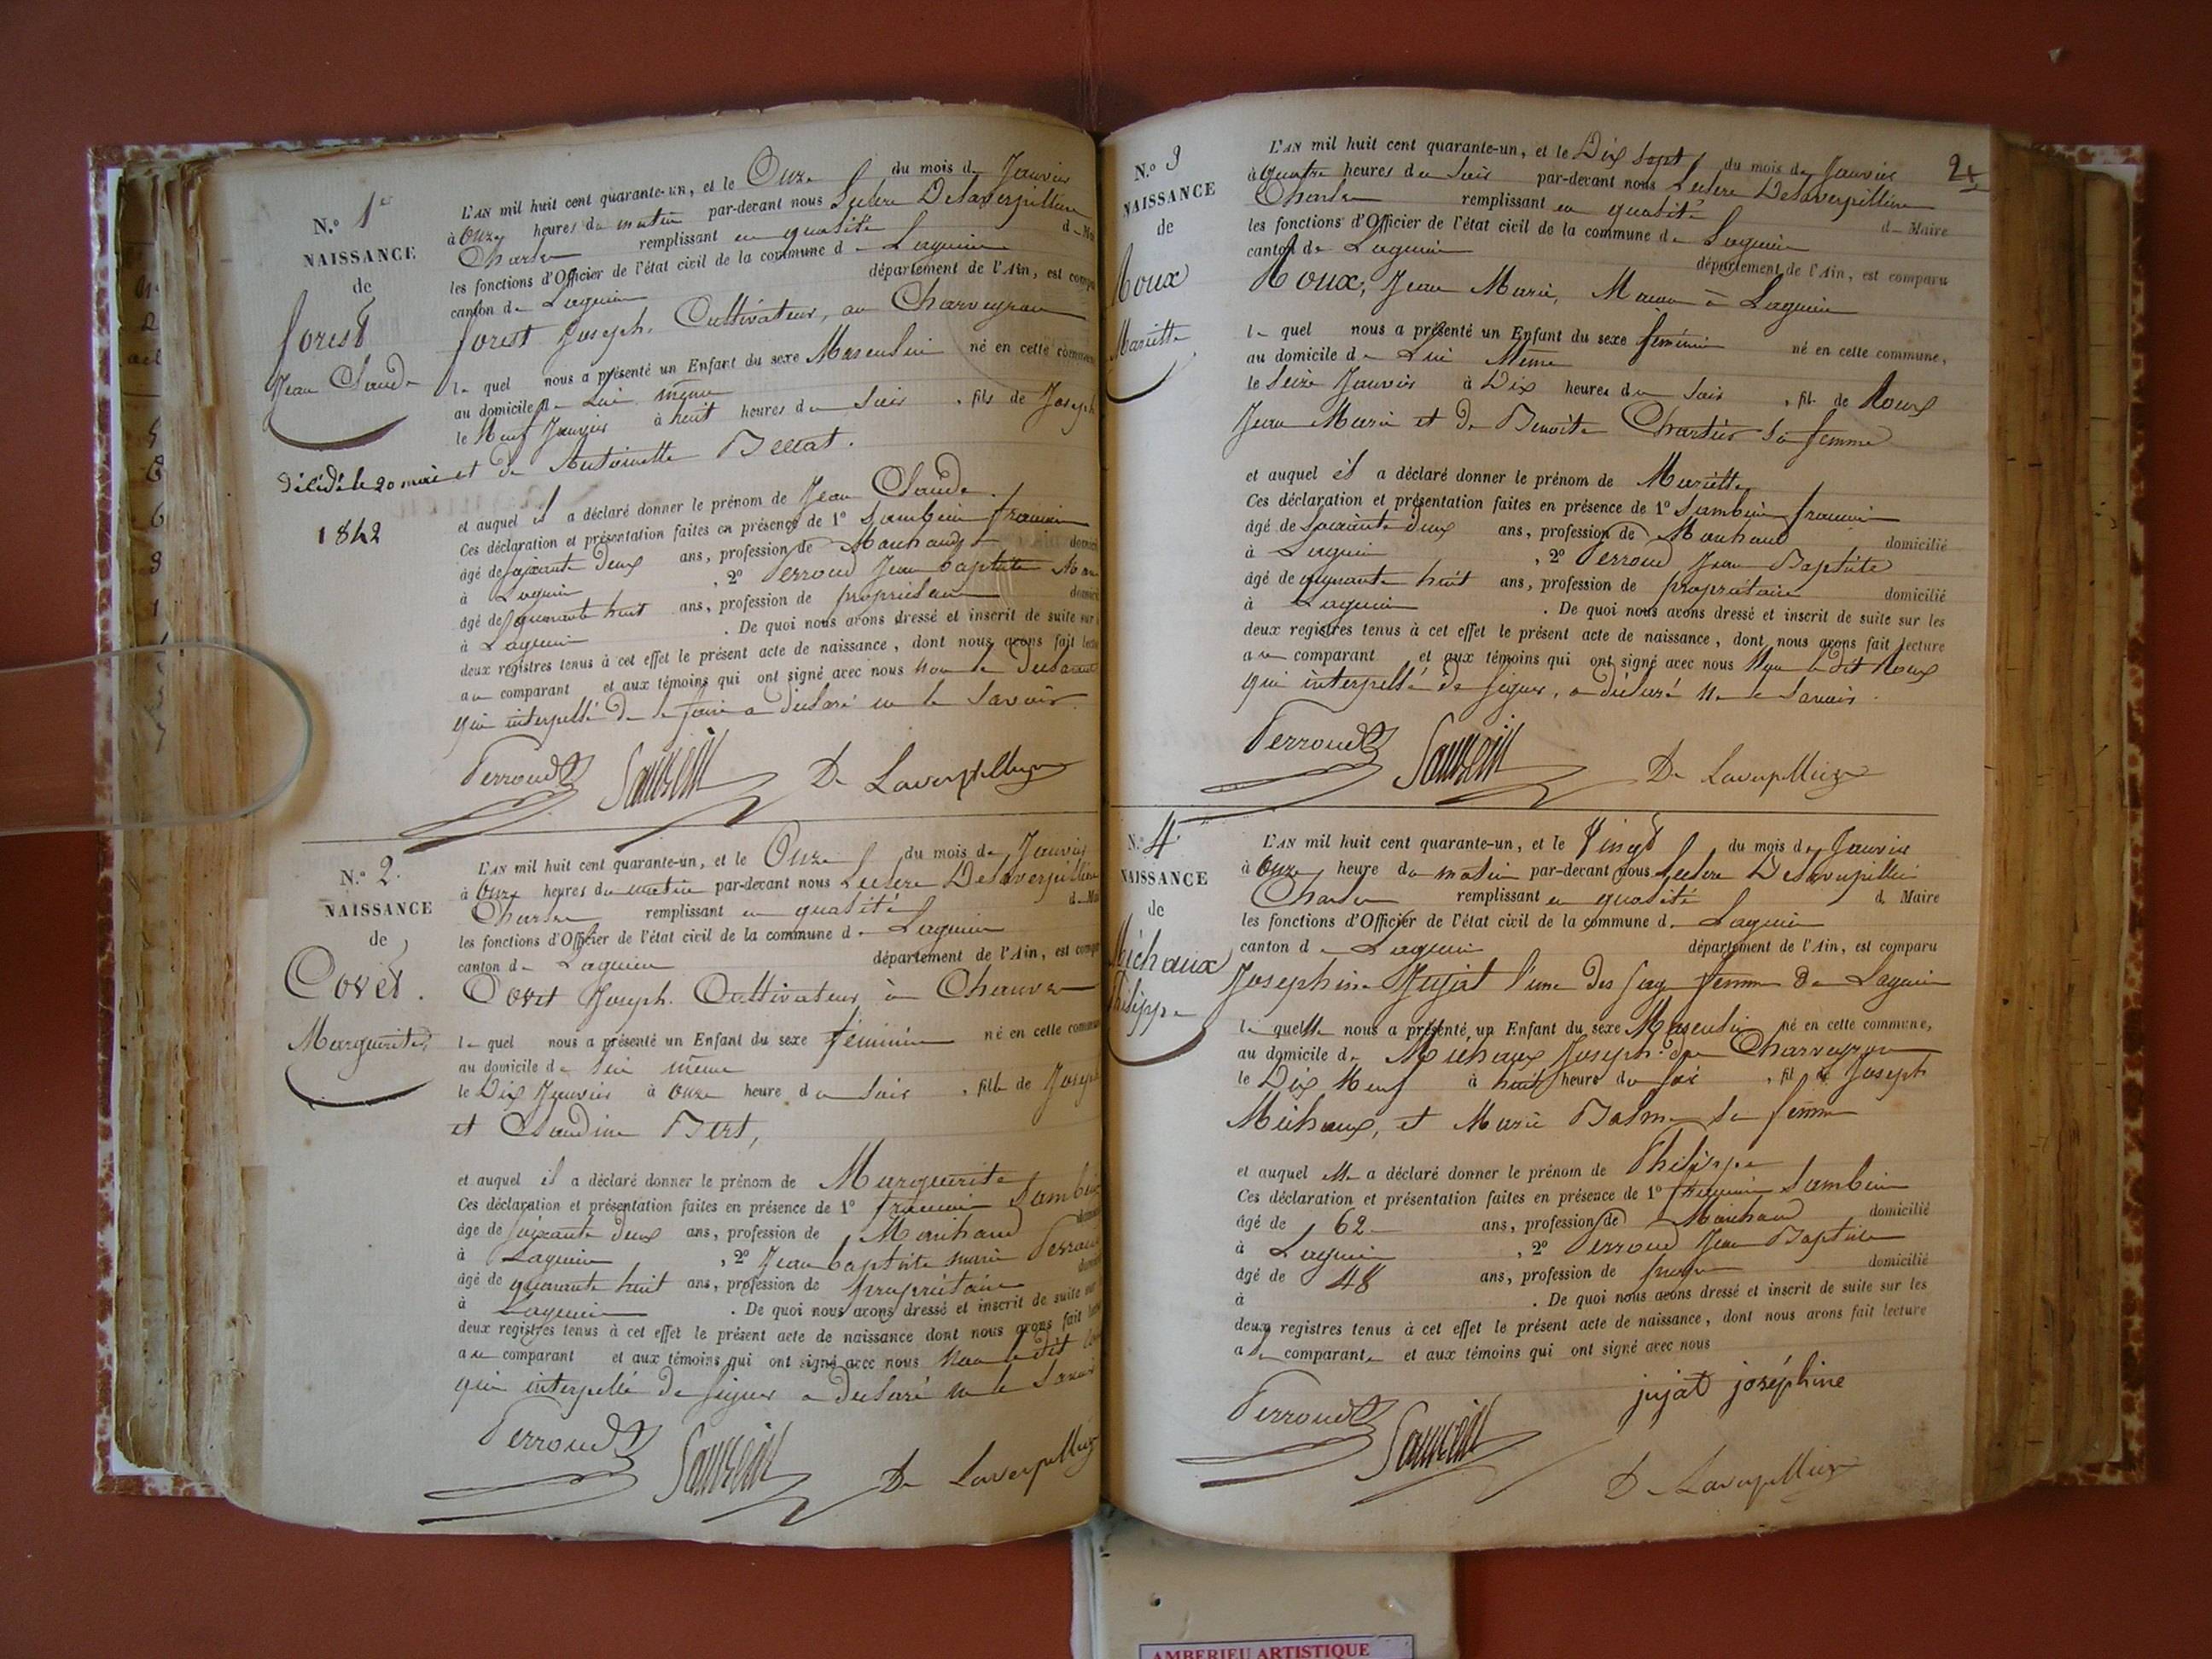 N.º 1er
NAISSANCE
de
forest
Jean Claude
décédé le 20 mai
1842
L'AN mil huit cent quarante-un, et le Onze du mois de Janvier
à Onze heures du matin par-devant nous Leclerc Delaverpillière
Charles remplissant en qualité d
les fonctions d'Officier de l'état civil de la commune de Lagnieu
canton de Lagnieu département de l'Ain, est
forest Joseph, Cultivateur, au Charveyron
le quel nous a présenté un Enfant du sexe Masculin né en cette
au domicile de Lui même
le Neuf Janvier à huit heures du Soir , fils de Joseph
et de Antoinette Bellat.
et auquel il a déclaré donner le prénom de Jean Claude.
Ces déclaration et présentation faites en présence de 1º
âgé de soixante deux ans, profession de Marchand
à Lagnieu , 2º Perroud Jean baptiste
âgé de quarante huit ans, profession de propriétaire
à Lagnieu . De quoi nous avons dressé et inscrit de suite sur
deux registres tenus à cet effet le présent acte de naissance, dont nous avons fait
au comparant et aux témoins qui ont signé avec nous non le
qui interpellé de le faire a déclaré ne le Savoir.
Perroud De Laverpillière
N.º 2.
NAISSANCE
de
Covet.
Marguerite
L'AN mil huit cent quarante-un, et le Onze du mois de Janvier
à Onze heures du matin par-devant nous Leclerc Delaverpillière
Charles remplissant en qualité
les fonctions d'Officier de l'état civil de la commune de Lagnieu
canton de Lagnieu département de l'Ain, est
Covet Joseph. Cultivateur, à
le quel nous a présenté un Enfant du sexe féminin né en cette
au domicile de lui même
le Dix Janvier à onze heure du Soir , fille de Joseph
et Claudine Bert,
et auquel il a déclaré donner le prénom de Marguerite
Ces déclaration et présentation faites en présence de 1º
âge de soixante deux ans, profession de Marchand
à Lagnieu , 2º Jean baptiste marie Perroud
âgé de quarante huit ans, profession de propriétaire
à Lagnieu . De quoi nous avons dressé et inscrit de suite
deux registres tenus à cet effet le présent acte de naissance dont nous avons fait
au comparant et aux témoins qui ont signé avec nous Non le dit
qui interpellé de signer a déclaré ne le Savoir
Perroud De Laverpillière
24
N.º 3
NAISSANCE
de
Roux
Mariette
L'AN mil huit cent quarante-un, et le Dix Sept du mois de Janvier
à quatre heures du Soir par-devant nous Leclerc Delaverpillière
Charles remplissant en qualité de Maire
les fonctions d'Officier de l'état civil de la commune de Lagnieu
canton de Lagnieu département de l'Ain, est comparu
Roux, Jean Marie, Maçon à Lagnieu
le quel nous a présenté un Enfant du sexe féminin né en cette commune,
au domicile de Lui Même
le Seize Janvier à Dix heures du Soir , fil. de Roux
Jean Marie et de Benoite Chartier Sa femme
et auquel il a déclaré donner le prénom de Mariette
Ces déclaration et présentation faites en présence de 1º
âgé de soixante deux ans, profession de Marchand domicilié
à Lagnieu , 2º Perroud Jean Baptiste
âgé de quarante huit ans, profession de propriétaire domicilié
à Lagnieu . De quoi nous avons dressé et inscrit de suite sur les
deux registres tenus à cet effet le présent acte de naissance, dont nous avons fait lecture
au comparant et aux témoins qui ont signé avec nous Non le dit Roux
qui interpellé de signer, a déclaré Ne le Savoir.
Perroud De Laverpillière
N.º 4
NAISSANCE
de
Michaux
Philippe
L'AN mil huit cent quarante-un, et le Vingt du mois de Janvier
à Onze heure du matin par-devant nous Leclerc Delaverpillière
Charles remplissant en qualité de Maire
les fonctions d'Officier de l'état civil de la commune de Lagnieu
canton de Lagnieu département de l'Ain, est comparu
Josephine Jujat l'une des Sage femme de Lagnieu
la quelle nous a présenté un Enfant du sexe Masculin né en cette commune,
au domicile de Michaux Joseph du Charveyron
le Dix Neuf à huit heure du soir , fil de Joseph
Michaux, et Marie Balme sa femme
et auquel elle a déclaré donner le prénom de Philippe
Ces déclaration et présentation faites en présence de 1º
âgé de 62 ans, profession de Marchand domicilié
à Lagnieu , 2º Perroud Jean Baptiste
âgé de 48 ans, profession de domicilié
à . De quoi nous avons dressé et inscrit de suite sur les
deux registres tenus à cet effet le présent acte de naissance, dont nous avons fait lecture
a la comparante et aux témoins qui ont signé avec nous
jujat joséphine
Perroud
De Laverpillière
AMBERIEU ARTISTIQUE